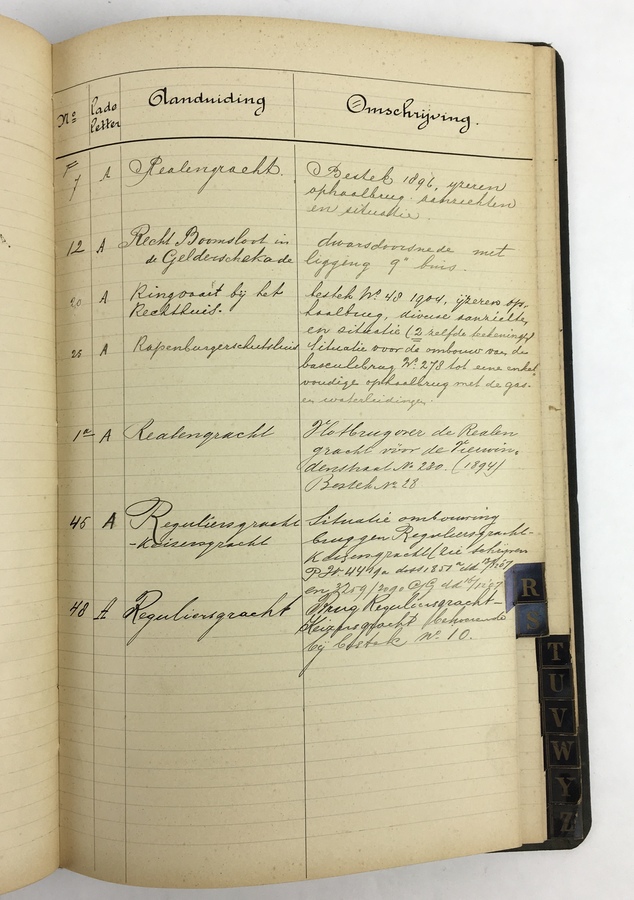 No
lade letter
Aanduiding
Omschrijving.
7 A Realengracht. Bestek 1896, ijzeren
ophaalbrug aanzichten
en situatie.
12 A Recht Boomsloot in dwarsdoorsnede met
de Gelderschekade ligging 9" buis.
20 A Ringvaart bij het bestek No. 48 1904, ijzeren op-
Rechthuis. haalbrug, diverse aanzichten
en situatie (2 zelfde tekeningen)
25 A Rapenburgerschutsluis Situatie voor de ombouw van de
basculebrug No. 278 tot eene enkel
voudige ophaalbrug met de gas-
en waterleidingen.
1a A Realengracht Hotbrug over de Realen
gracht vóór de Vierwin-
denstraat No 280. (1894)
Bestek No 28
46 A Reguliersgracht Situatie ombouwing
-Keizersgracht bruggen Reguliersgracht-
Keizersgracht (zie schrijven
P.W.
en
48 A Reguliersgracht Brug Reguliersgracht-
Keizersgracht (behoorende
bij bestek No. 10.
R
S
T
U
V
W
Y
Z